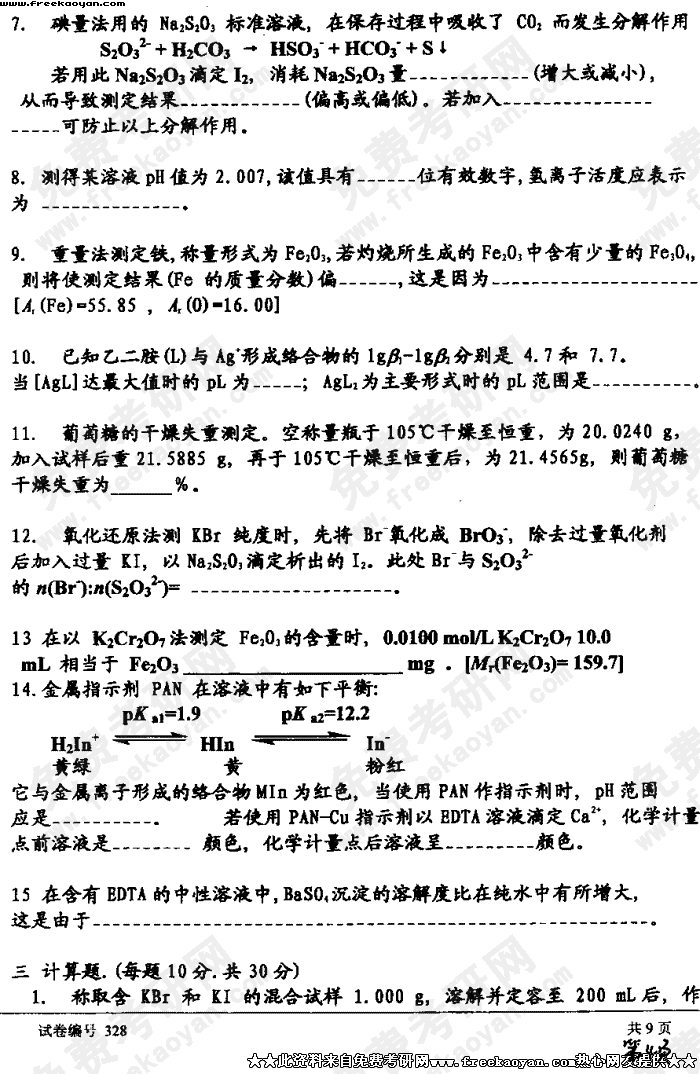 www.freekaoyan.com
7. 碘量法用的 Na₂S₂O₃ 标准溶液, 在保存过程中吸收了 CO₂ 而发生分解作用
S₂O₃²⁻ + H₂CO₃ → HSO₃⁻ + HCO₃⁻ + S↓
若用此 Na₂S₂O₃ 滴定 I₂, 消耗 Na₂S₂O₃ 量------------(增大或减小),
从而导致测定结果------------(偏高或偏低)。若加入---------------
-----可防止以上分解作用。
8. 测得某溶液 pH 值为 2.007, 该值具有------位有效数字, 氢离子活度应表示
为 --------------。
9. 重量法测定铁, 称量形式为 Fe₂O₃, 若灼烧所生成的 Fe₂O₃ 中含有少量的 Fe₃O₄,
则将使测定结果(Fe 的质量分数)偏------, 这是因为---------------------
[Aᵣ(Fe)=55.85 , Aᵣ(O)=16.00]
10. 已知乙二胺(L)与 Ag⁺形成络合物的 lgβ₁-lgβ₂ 分别是 4.7 和 7.7。
当[AgL]达最大值时的 pL 为-----; AgL₂ 为主要形式时的 pL 范围是----------。
11. 葡萄糖的干燥失重测定。空称量瓶于 105℃干燥至恒重, 为 20.0240 g,
加入试样后重 21.5885 g, 再于 105℃干燥至恒重后, 为 21.4565g, 则葡萄糖
干燥失重为______%。
12. 氧化还原法测 KBr 纯度时, 先将 Br⁻氧化成 BrO₃⁻, 除去过量氧化剂
后加入过量 KI, 以 Na₂S₂O₃ 滴定析出的 I₂。此处 Br⁻与 S₂O₃²⁻
的 n(Br⁻):n(S₂O₃²⁻)= --------------------。
13 在以 K₂Cr₂O₇ 法测定 Fe₂O₃ 的含量时, 0.0100 mol/L K₂Cr₂O₇ 10.0
mL 相当于 Fe₂O₃ ____________________ mg 。[Mᵣ(Fe₂O₃)= 159.7]
14. 金属指示剂 PAN 在溶液中有如下平衡:
pK a1=1.9 pK a2=12.2
H₂In⁺ ⇌ HIn ⇌ In⁻
黄绿 黄 粉红
它与金属离子形成的络合物 MIn 为红色, 当使用 PAN 作指示剂时, pH 范围
应是-----------。 若使用 PAN-Cu 指示剂以 EDTA 溶液滴定 Ca²⁺, 化学计量
点前溶液是-------- 颜色, 化学计量点后溶液呈---------颜色。
15 在含有 EDTA 的中性溶液中, BaSO₄ 沉淀的溶解度比在纯水中有所增大,
这是由于--------------------------------------------------------。
三 计算题. (每题 10 分. 共 30 分)
1. 称取含 KBr 和 KI 的混合试样 1.000 g, 溶解并定容至 200 mL 后, 作
试卷编号 328 共 9 页
★★此资料来自免费考研网www.freekaoyan.com热心网友提供★★